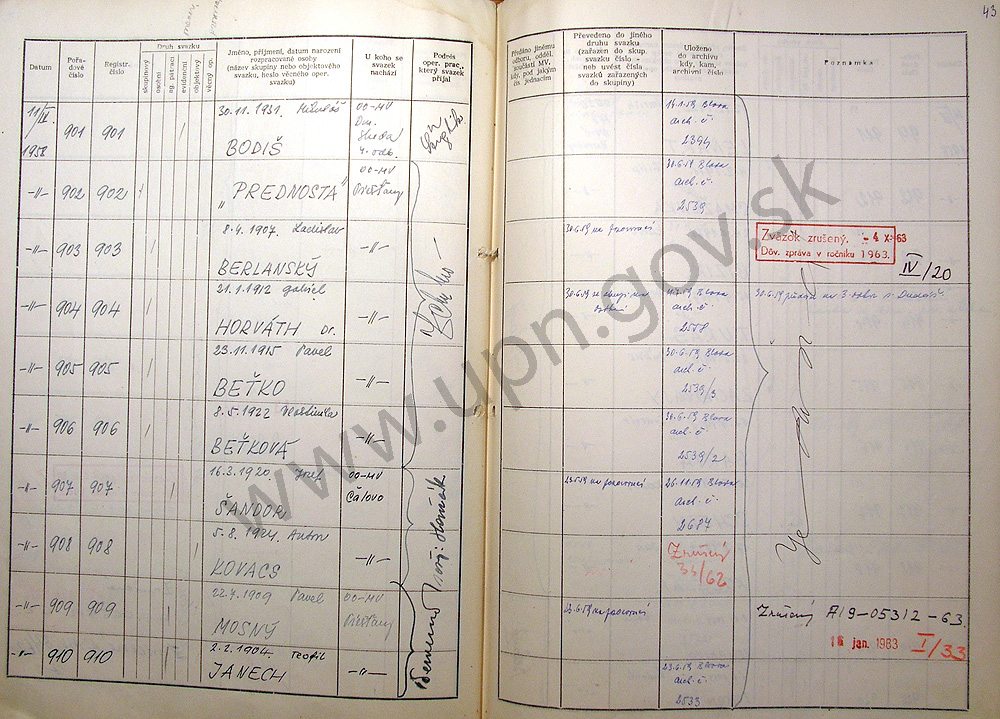 43
Datum
Pořa-
dové
číslo
Registr.
číslo
Druh svazku
skupinový
osobní
ag. pátrací
evidenční
objektový
věcný op.
Jméno, příjmení, datum narození
rozpracované osoby
(název skupiny nebo objektového
svazku, heslo věcného oper.
svazku)
U koho se
svazek
nachází
Podpis
oper. prac.,
který svazek
přijal
Předáno jinému
odboru, odděl.
součásti MV,
kdy, pod jakým
čís. jednacím
Převedeno do jiného
druhu svazku
(zařazen do skup.
svazku číslo -
neb uvést čísla
svazků zařazených
do skupiny)
Uloženo
do archivu
kdy, kam,
archivní číslo
Poznamka
11/IX.
1958
901 901
30.11.1931. Mikuláš
BODIŠ
OO-MV
Dun.
Streda
4. odb.
14.1.59 Blava
arch. č.
2394
-||- 902 902
„PREDNOSTA"
OO-MV
Piešťany
30.6.59 Blava
arch. č.
2539
-||- 903 903
8.4.1907. Ladislav
BERLANSKÝ
-||-
30.6.59 na pozorovací
Zväzok zrušený. - 4 X. 63
Dôv. zpráva v ročníku 1963.
IV/20
-||- 904 904
21.1.1912 Gabriel
HORVÁTH Dr.
-||-
2558
-||- 905 905
23.11.1915 Pavel
BEŤKO
-||-
30.6.59 Blava
arch. č.
2539/3
-||- 906 906
8.5.1922 Vlastimila
BEŤKOVÁ
-||-
30.6.59 Blava
arch. č.
2539/2
-||- 907 907
16.3.1920. Jozef
ŠANDOR
OO-MV
Čalovo
na pozorovací
26.11.59 Blava
arch. č.
2687
-||- 908 908
5.8.1924. Anton
KOVACS
-||-
Zrušený
35/62
-||- 909 909
22.4.1909 Pavel
MOSNÝ
OO-MV
Piešťany
23.6.59 na pozorovací
Zrušený A19-05312-63.
16 jan. 1963 I/33
-||- 910 910
2.2.1904. Teofil
JANECH
-||-
23.6.59 Blava
arch. č.
2533
www.upn.gov.sk